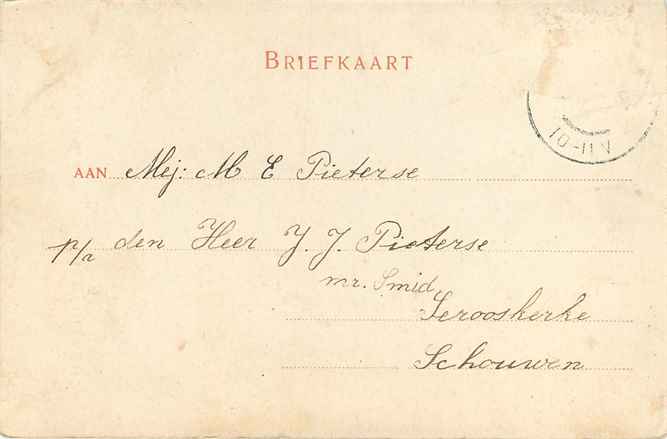 BRIEFKAART
10-11 V
AAN Mej: M E Pieterse
p/a den Heer J. J. Pieterse
mr. Smid
Serooskerke
Schouwen